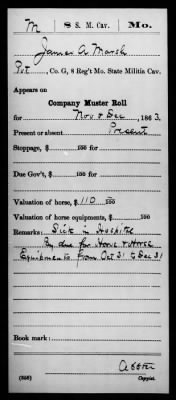 M 8 S. M. Cav. Mo.
James A Marsh
Pvt, Co. G, 8 Reg't Mo. State Militia Cav.
Appears on
Company Muster Roll
for Nov & Dec, 1863.
Present or absent Present
Stoppage, $ 100
Due Gov't, $ 100
Valuation of horse, $ 110 100
Valuation of horse equipments, $ 100
Remarks: Sick in Hospital
Pay due for Horse & Horse
Equipments from Oct 31 to Dec 31
Book mark:
(358)
Copyist.